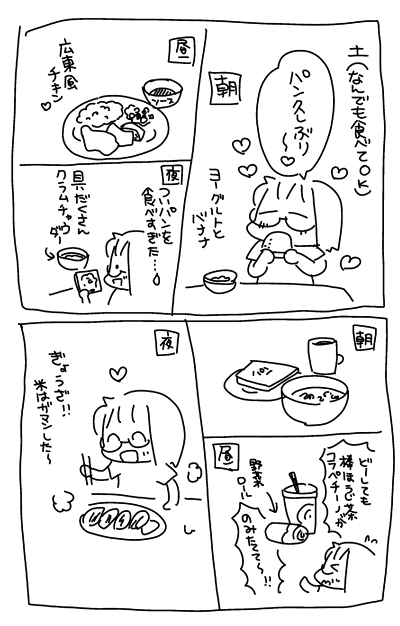 土(なんでも食べてOK)
朝
パン久しぶり
〜
ヨーグルトと
バナナ
昼
広東風
チキン
ソース
夜
ついパンを
食べすぎた…
具だくさん
クラムチャウ
ダー
朝
昼
どーしても
棒ほうじ茶
フラペチーノが
のみたくて〜!!
野菜
ロール
夜
ぎょうざ!!
米はガマンした〜